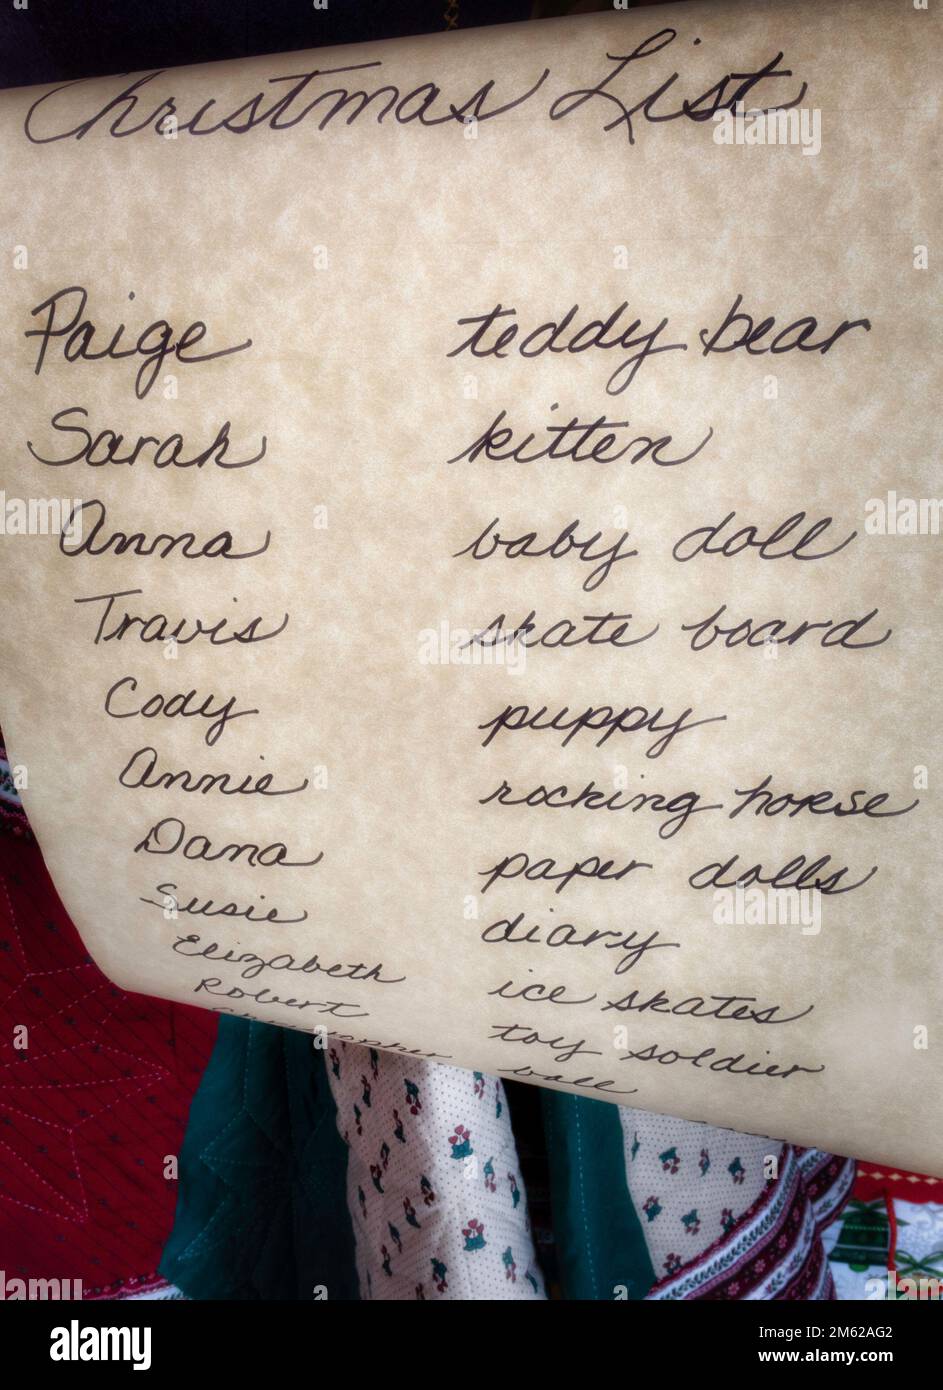 Christmas List
Paige teddy bear
Sarah kitten
Anna baby doll
Travis skate board
Cody puppy
Annie rocking horse
Dana paper dolls
Susie diary
Elizabeth ice skates
Robert toy soldier
Christopher ball
alamy
Image ID: 2M62AG2
www.alamy.com